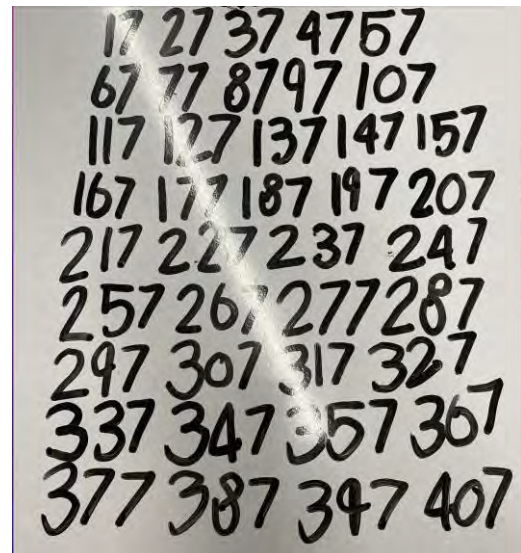 17 27 37 47 57
67 77 87 97 107
117 127 137 147 157
167 177 187 197 207
217 227 237 247
257 267 277 287
297 307 317 327
337 347 357 367
377 387 397 407